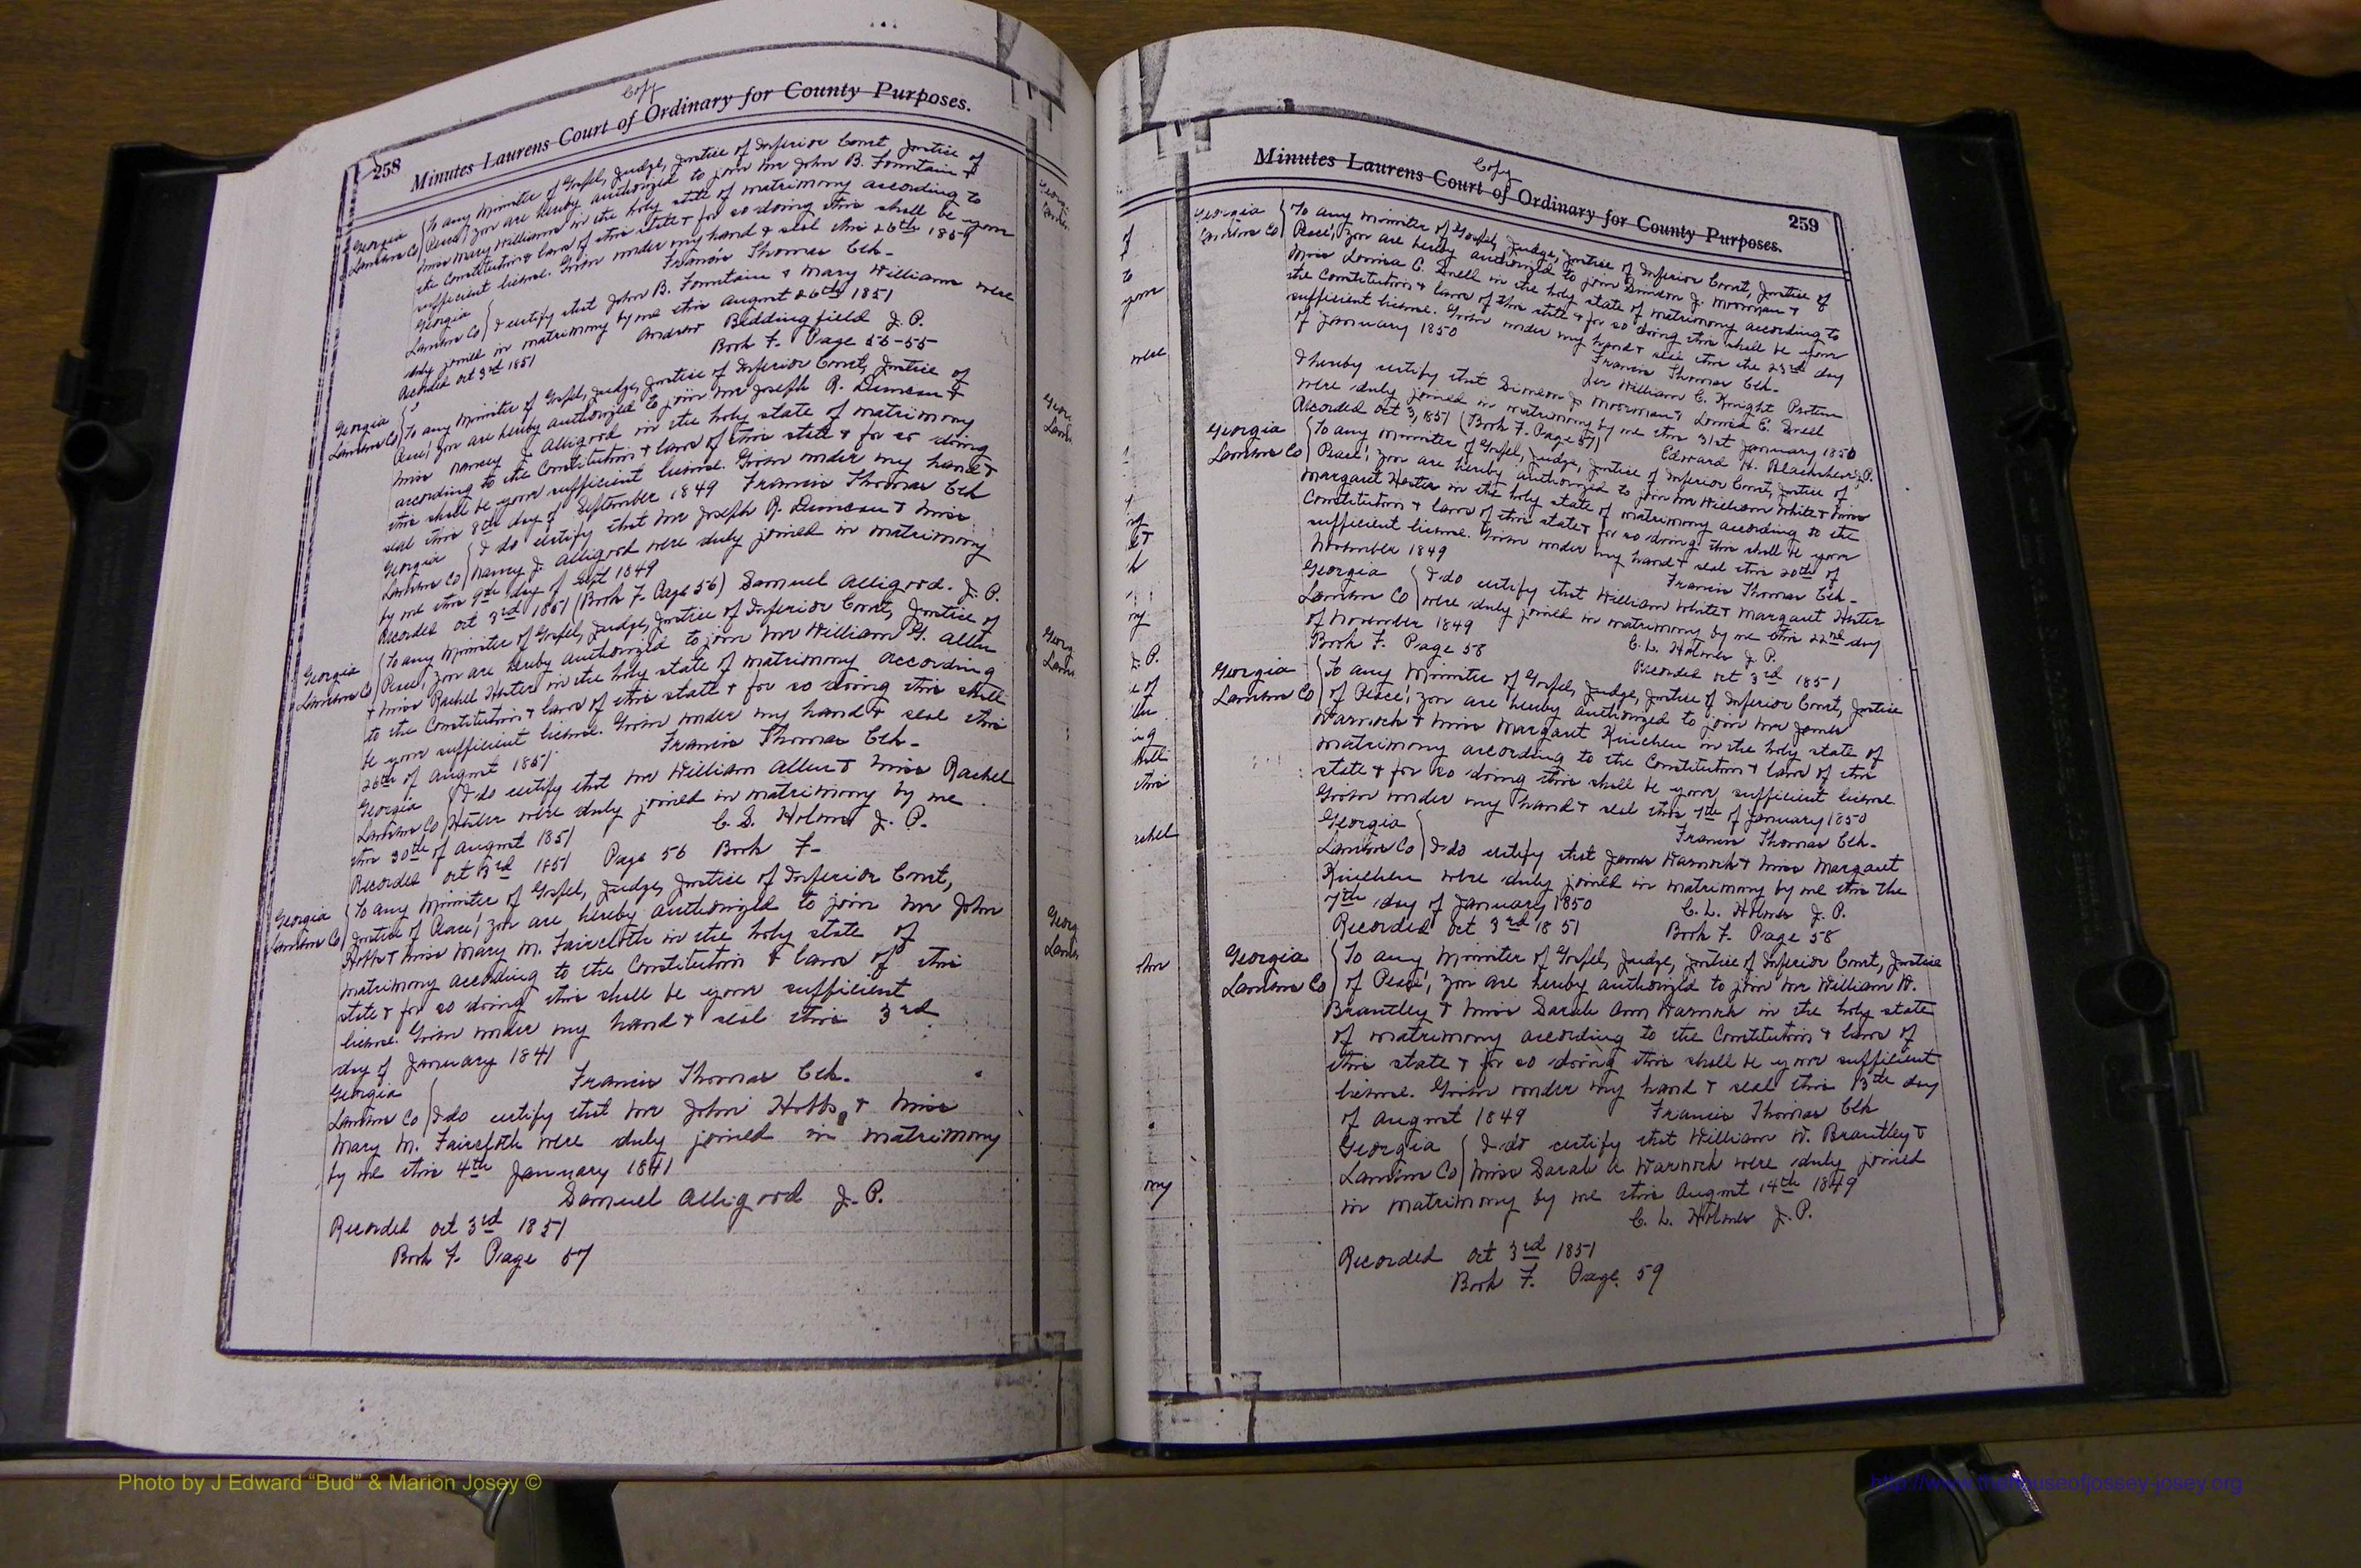 Copy
258 Minutes Laurens Court of Ordinary for County Purposes.
Georgia
Laurens Co
To any Minister of Gospel, Judge, Justice of Inferior Court, Justice of
Peace; you are hereby authorized to join Mr John B. Fountain &
Miss Mary Williams in the holy state of matrimony according to
the Constitution & laws of this state & for so doing this shall be your
sufficient license. Given under my hand & seal this 26th 1851
Francis Thomas Clk.
Georgia
Laurens Co
I certify that John B. Fountain & Mary Williams were
duly joined in matrimony by me this August 26th 1851
Andrew Beddingfield J.P.
Recorded Oct 3rd 1851
Book F. Page 55-55
Georgia
Laurens Co
To any Minister of Gospel, Judge, Justice of Inferior Court, Justice of
Peace; you are hereby authorized to join Mr Joseph R. Duncan &
Miss Nancy J. Alligood in the holy state of matrimony
according to the Constitution & laws of this state & for so doing
this shall be your sufficient license. Given under my hand &
seal this 8th day of September 1849 Francis Thomas Clk
Georgia
Laurens Co
I do certify that Mr Joseph R. Duncan & Miss
Nancy J. Alligood were duly joined in matrimony
by me this 9th day of Sept 1849
Recorded Oct 3rd 1851 (Book F. Page 56) Samuel Alligood. J.P.
Georgia
Laurens Co
To any Minister of Gospel, Judge, Justice of Inferior Court, Justice of
Peace; you are hereby authorized to join Mr William G. Allen
& Miss Rachel Hester in the holy state of matrimony according
to the Constitution & laws of this state & for so doing this shall
be your sufficient license. Given under my hand & seal this
26th of August 1851
Francis Thomas Clk.
Georgia
Laurens Co
I do certify that Mr William Allen & Miss Rachel
Hester were duly joined in matrimony by me
this 30th of August 1851
C. S. Holmes J.P.
Recorded Oct 3rd 1851 Page 56 Book F.
Georgia
Laurens Co
To any Minister of Gospel, Judge, Justice of Inferior Court,
Justice of Peace; you are hereby authorized to join Mr John
Hobbs & Miss Mary M. Faircloth in the holy state of
matrimony according to the Constitution & laws of this
state & for so doing this shall be your sufficient
license. Given under my hand & seal this 3rd
day of January 1841
Francis Thomas Clk.
Georgia
Laurens Co
I do certify that Mr John Hobbs & Miss
Mary M. Faircloth were duly joined in matrimony
by me this 4th January 1841
Samuel Alligood J.P.
Recorded Oct 3rd 1851
Book F. Page 57
Copy
Minutes Laurens Court of Ordinary for County Purposes. 259
Georgia
Laurens Co
To any Minister of Gospel, Judge, Justice of Inferior Court, Justice of
Peace; you are hereby authorized to join Simeon J. Moorman &
Miss Louisa E. Snell in the holy state of matrimony according to
the Constitution & laws of this state & for so doing this shall be your
sufficient license. Given under my hand & seal this the 23rd day
of January 1850
Francis Thomas Clk.
Per William C. Knight Protem
I hereby certify that Simeon J. Moorman & Louisa E. Snell
were duly joined in matrimony by me this 31st January 1850
Recorded Oct 3, 1851 (Book F. Page 57) Edward H. Blackshear J.P.
Georgia
Laurens Co
To any Minister of Gospel, Judge, Justice of Inferior Court, Justice of
Peace; you are hereby authorized to join Mr William White & Miss
Margaret Hester in the holy state of matrimony according to the
Constitution & laws of this state & for so doing this shall be your
sufficient license. Given under my hand & seal this 20th of
November 1849
Francis Thomas Clk.
Georgia
Laurens Co
I do certify that William White & Margaret Hester
were duly joined in matrimony by me this 22nd day
of November 1849
C. L. Holmes J.P.
Book F. Page 58
Recorded Oct 3rd 1851
Georgia
Laurens Co
To any Minister of Gospel, Judge, Justice of Inferior Court, Justice
of Peace; you are hereby authorized to join Mr James
Warnock & Miss Margaret Kinchen in the holy state of
matrimony according to the Constitution & laws of this
state & for so doing this shall be your sufficient license.
Given under my hand & seal this 7th of January 1850
Francis Thomas Clk.
Georgia
Laurens Co
I do certify that James Warnock & Miss Margaret
Kinchen were duly joined in matrimony by me this the
7th day of January 1850
C. L. Holmes J.P.
Recorded Oct 3rd 1851 Book F. Page 58
Georgia
Laurens Co
To any Minister of Gospel, Judge, Justice of Inferior Court, Justice
of Peace; you are hereby authorized to join Mr William W.
Brantley & Miss Sarah Ann Warnock in the holy state
of matrimony according to the Constitution & laws of
this state & for so doing this shall be your sufficient
license. Given under my hand & seal this 13th day
of August 1849 Francis Thomas Clk
Georgia
Laurens Co
I do certify that William W. Brantley &
Miss Sarah A Warnock were duly joined
in matrimony by me this August 14th 1849
C. L. Holmes J.P.
Recorded Oct 3rd 1851
Book F. Page 59
Photo by J Edward “Bud” & Marion Josey ©
http://www.thehouseofjossey-josey.org